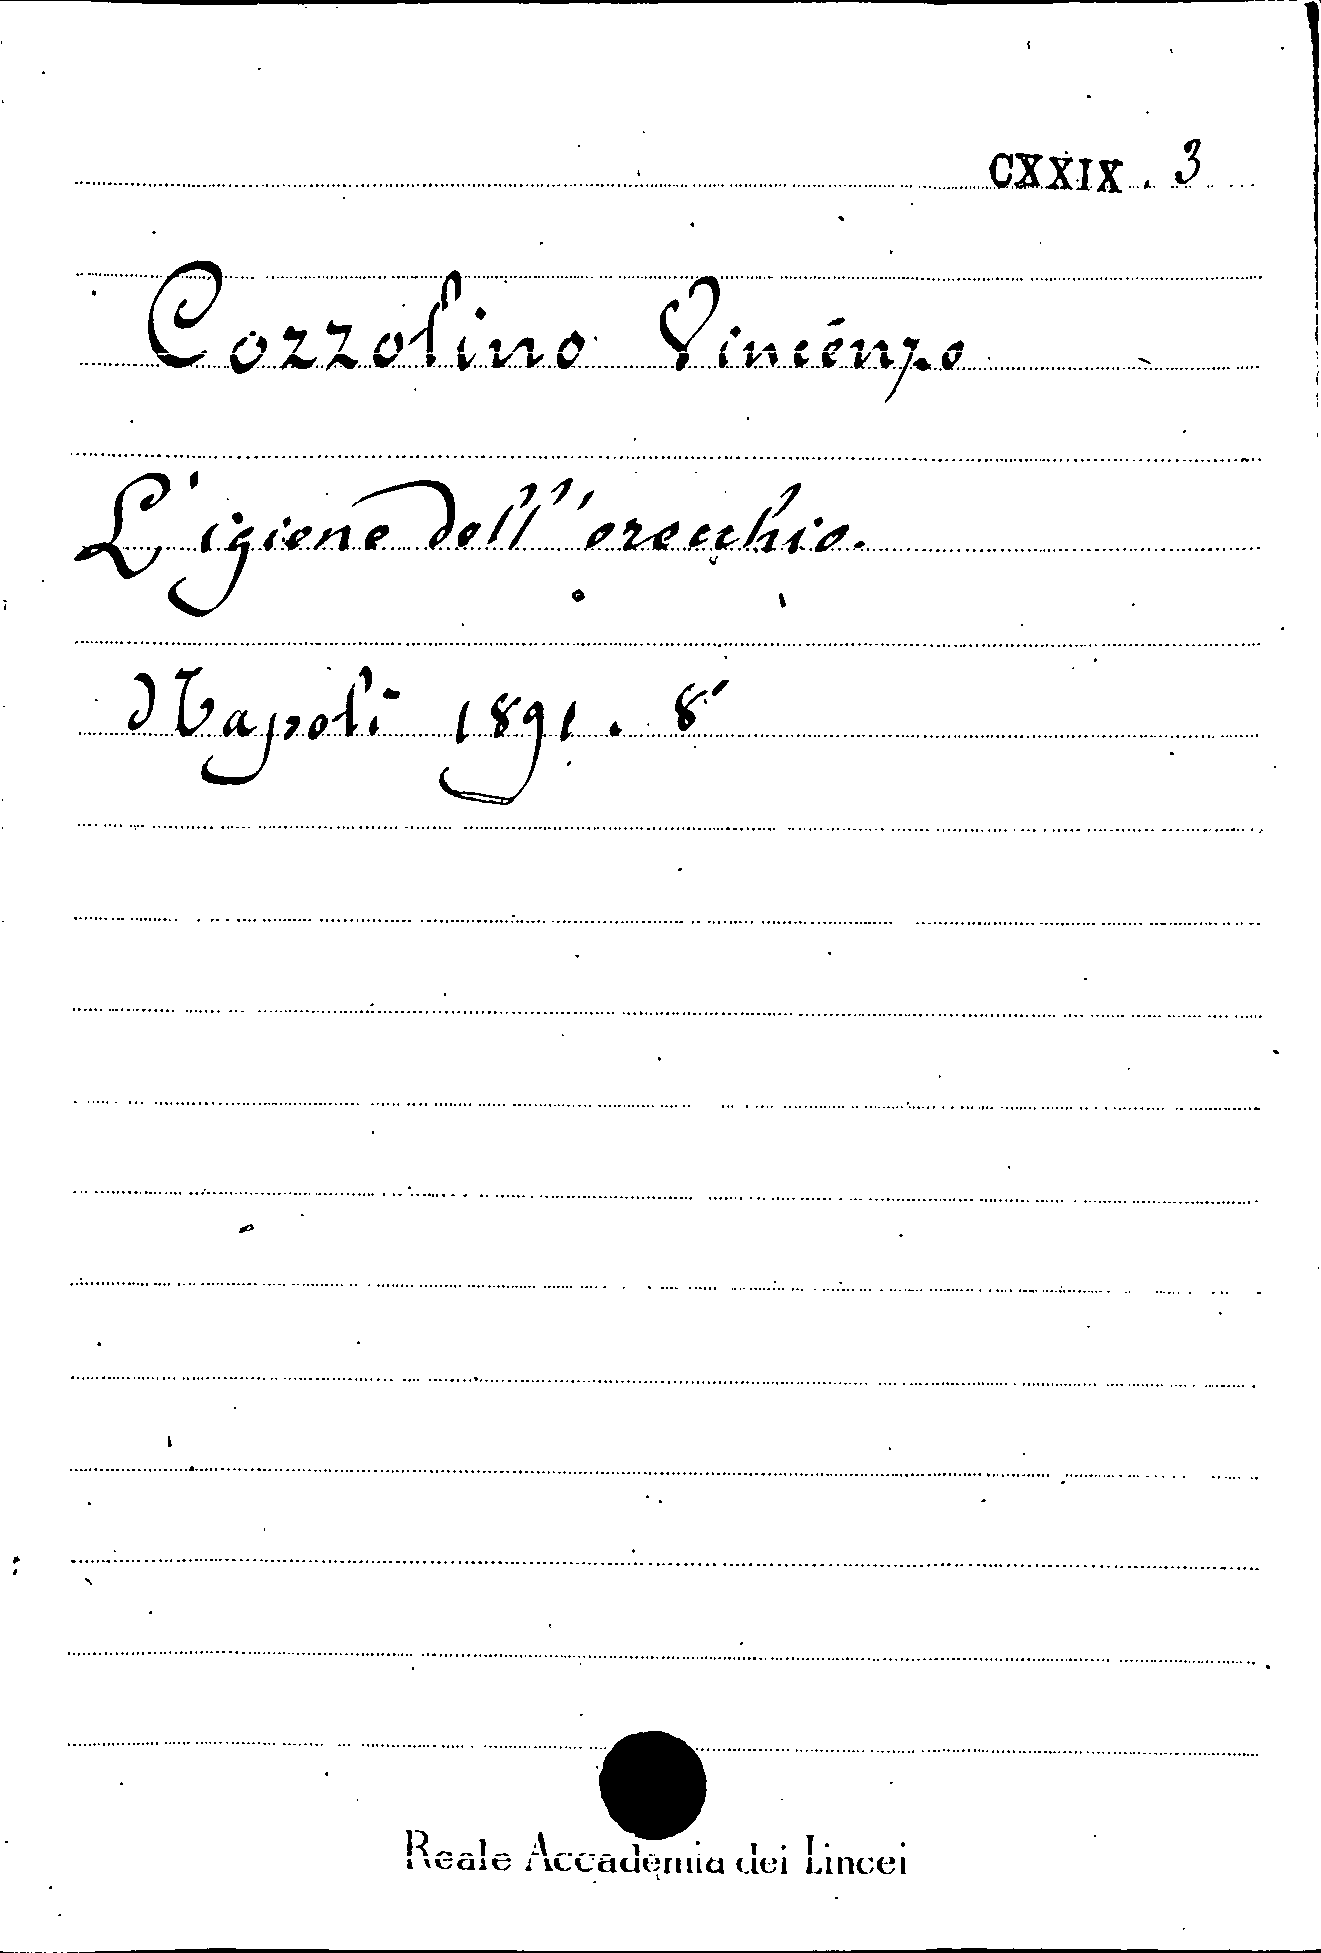 CXXIX . 3
Cozzolino Vincenzo
L'igiene dell'orecchio.
Napoli 1891. 8°
Reale Accademia dei Lincei